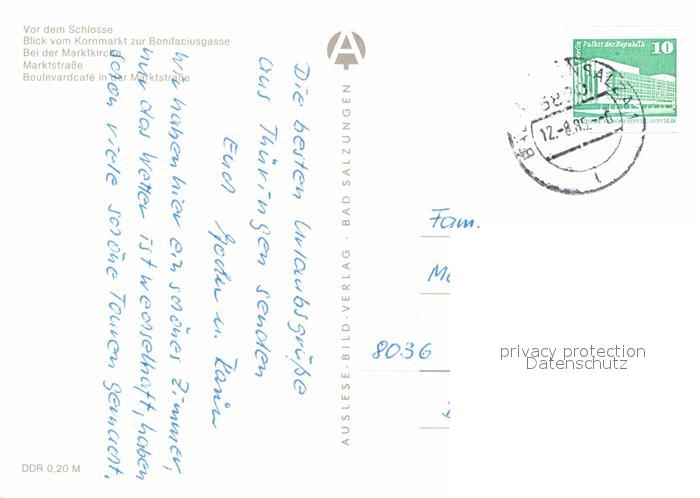 Vor dem Schlosse
Blick vom Kornmarkt zur Bonifaciusgasse
Bei der Marktkirche
Marktstraße
Boulevardcafé in der Marktstraße
Die besten Urlaubsgrüße
aus Thüringen senden
Euch u. Karin
Wir haben hier ein schönes Zimmer,
nur das Wetter ist wechselhaft, haben
schon viele schöne Touren gemacht.
DDR 0,20 M
AUSLESE-BILD-VERLAG · BAD SALZUNGEN
Berlin Palast der Republik
10
DEUTSCHE DEMOKRATISCHE REPUBLIK
5820
12.-8.85.-6
Fam.
8036
privacy protection
Datenschutz